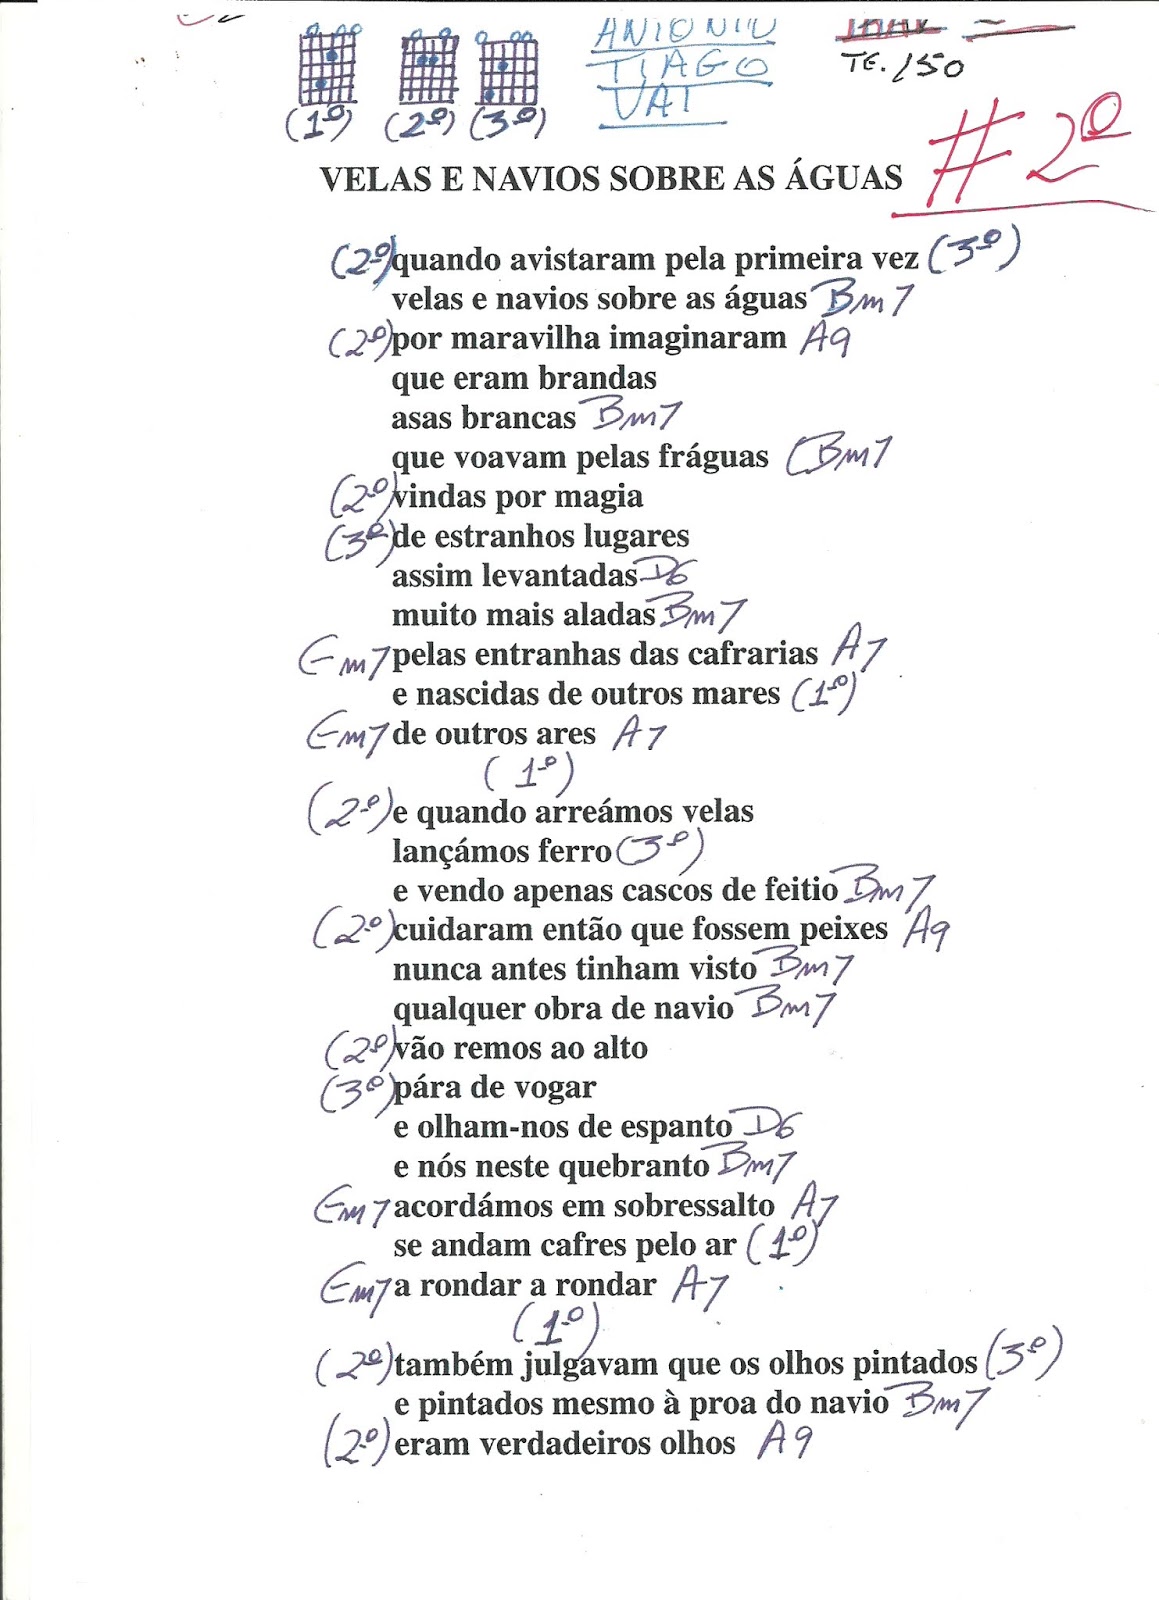 ANTONIO
TIAGO
VAI
TE. 150
(1º) (2º) (3º)
# 2º
VELAS E NAVIOS SOBRE AS ÁGUAS
(2º) quando avistaram pela primeira vez (3º)
velas e navios sobre as águas Bm7
(2º) por maravilha imaginaram A9
que eram brandas
asas brancas Bm7
que voavam pelas fráguas (Bm7
(2º) vindas por magia
(3º) de estranhos lugares
assim levantadas D6
muito mais aladas Bm7
Em7 pelas entranhas das cafrarias A7
e nascidas de outros mares (1º)
Em7 de outros ares A7
(1º)
(2º) e quando arreámos velas
lançámos ferro (3º)
e vendo apenas cascos de feitio Bm7
(2º) cuidaram então que fossem peixes A9
nunca antes tinham visto Bm7
qualquer obra de navio Bm7
(2º) vão remos ao alto
(3º) pára de vogar
e olham-nos de espanto D6
e nós neste quebranto Bm7
Em7 acordámos em sobressalto A7
se andam cafres pelo ar (1º)
Em7 a rondar a rondar A7
(1º)
(2º) também julgavam que os olhos pintados (3º)
e pintados mesmo à proa do navio Bm7
(2º) eram verdadeiros olhos A9